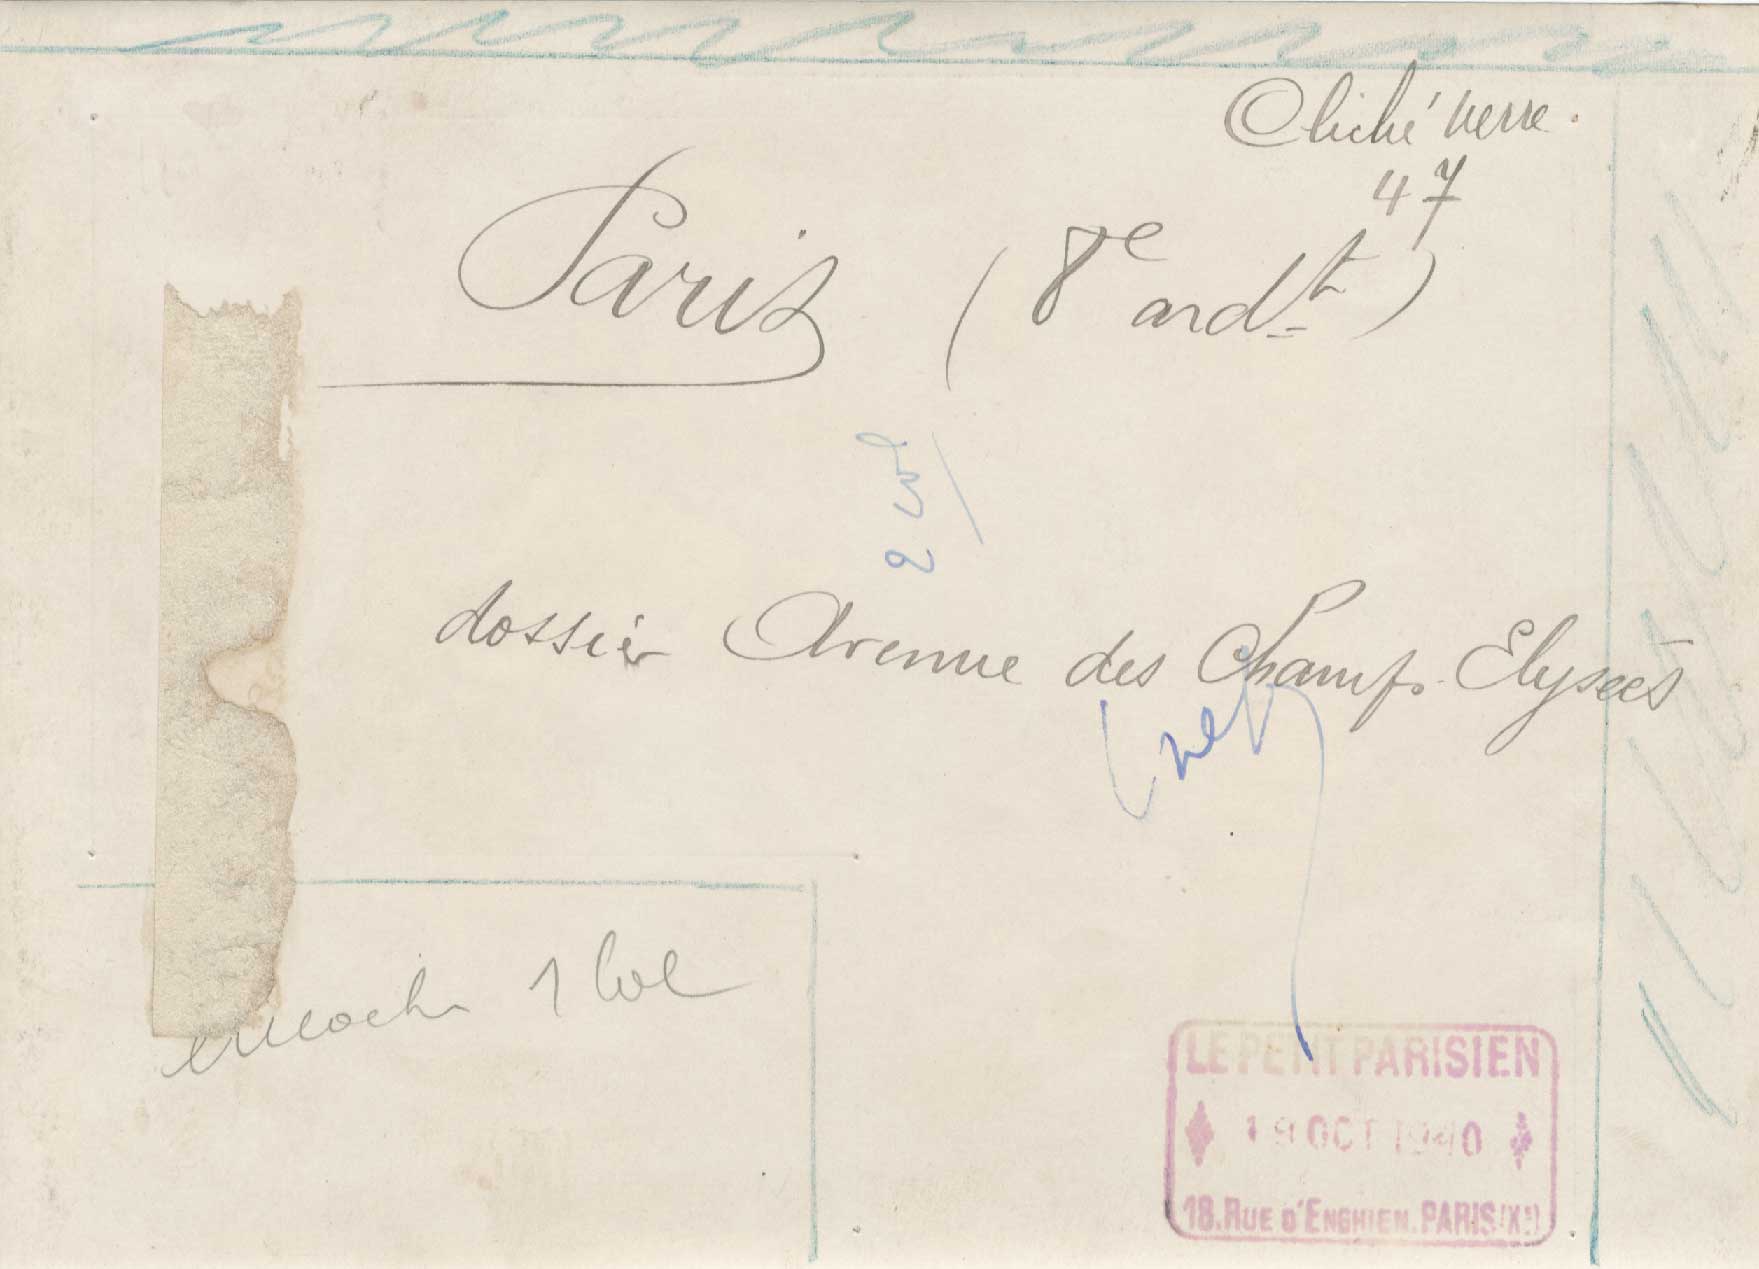 Cliché verre.
47
Paris (8e ardt)
2 col
dossier Avenue des Champs Elysées
net
encoche 1 col
LE PETIT PARISIEN
19 OCT 1940
18. RUE D'ENGHIEN. PARIS (Xe)